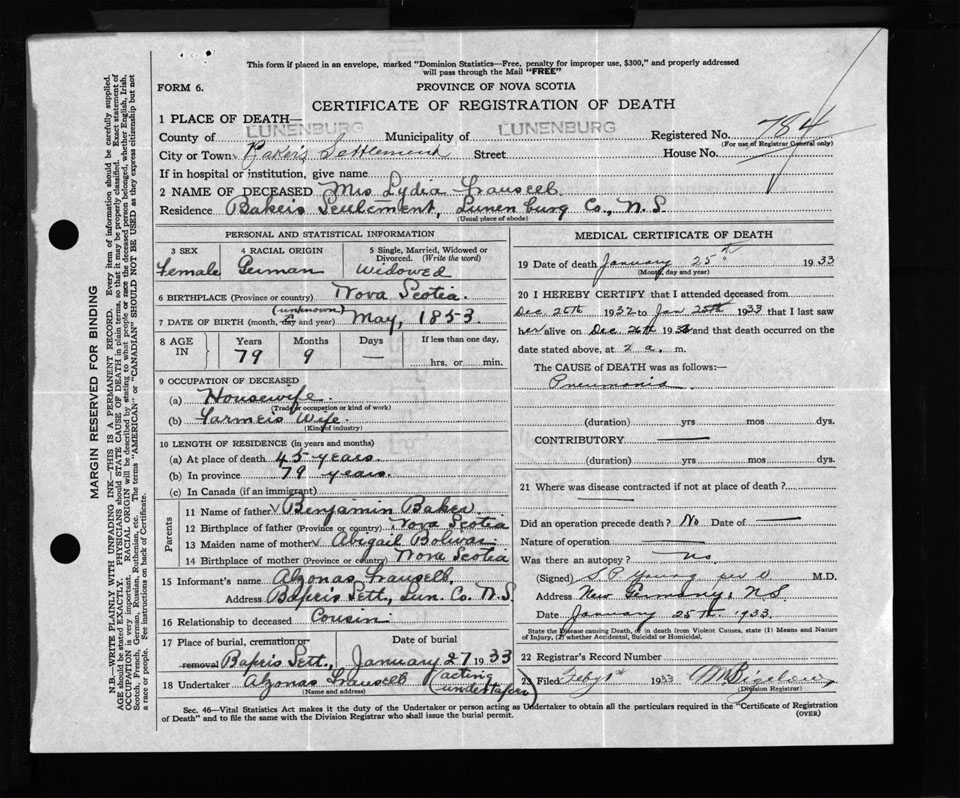 This form if placed in an envelope, marked "Dominion Statistics—Free, penalty for improper use, $300," and properly addressed
will pass through the Mail "FREE"
FORM 6.
PROVINCE OF NOVA SCOTIA
CERTIFICATE OF REGISTRATION OF DEATH
1 PLACE OF DEATH—
County of LUNENBURG Municipality of LUNENBURG Registered No. 784
(For use of Registrar General only)
City or Town Baker's Settlement Street House No.
If in hospital or institution, give name
2 NAME OF DECEASED Mrs Lydia
Residence Bakers Settlement, Lunenburg Co., N.S.
(Usual place of abode)
PERSONAL AND STATISTICAL INFORMATION
3 SEX 4 RACIAL ORIGIN 5 Single, Married, Widowed or
Divorced. (Write the word)
Female German Widowed
6 BIRTHPLACE (Province or country) Nova Scotia.
(unknown)
7 DATE OF BIRTH (month, day and year) May, 1853.
8 AGE IN Years Months Days If less than one day,
79 9 — hrs. or min.
9 OCCUPATION OF DECEASED
(a) Housewife.
(Trade or occupation or kind of work)
(b) Farmer's Wife.
(Kind of industry)
10 LENGTH OF RESIDENCE (in years and months)
(a) At place of death 45 years.
(b) In province 79 years.
(c) In Canada (if an immigrant)
Parents
11 Name of father Benjamin Baker
12 Birthplace of father (Province or country) Nova Scotia
13 Maiden name of mother Abigail Bolivar
14 Birthplace of mother (Province or country) Nova Scotia
15 Informant's name Alzonas
Address Bakers Sett., Lun. Co. N.S.
16 Relationship to deceased Cousin
17 Place of burial, cremation or Date of burial
removal Bakers Sett., January 27 1933
18 Undertaker Alzonas (acting undertaker)
(Name and address)
MEDICAL CERTIFICATE OF DEATH
19 Date of death January 25th 1933
(Month, day and year)
20 I HEREBY CERTIFY that I attended deceased from
Dec 26th 1932 to Jan 25th 1933 that I last saw
her alive on Dec 26th 1932 and that death occurred on the
date stated above, at 2 a. m.
The CAUSE of DEATH was as follows:—
Pneumonia
(duration) yrs mos dys.
CONTRIBUTORY —
(duration) yrs mos dys.
21 Where was disease contracted if not at place of death?
—
Did an operation precede death? No Date of —
Nature of operation —
Was there an autopsy? no
(Signed) S. P. Young M.D.
Address New Germany, N.S.
Date January 25th 1933.
State the Disease causing Death, or in death from Violent Causes, state (1) Means and Nature
of Injury, (2) whether Accidental, Suicidal or Homicidal.
22 Registrar's Record Number
23 Filed Feby 1st 1933 Bigelow
(Division Registrar)
Sec. 46—Vital Statistics Act makes it the duty of the Undertaker or person acting as Undertaker to obtain all the particulars required in the "Certificate of Registration
of Death" and to file the same with the Division Registrar who shall issue the burial permit.
(OVER)
MARGIN RESERVED FOR BINDING
N.B.—WRITE PLAINLY WITH UNFADING INK—THIS IS A PERMANENT RECORD. Every item of information should be carefully supplied.
AGE should be stated EXACTLY. PHYSICIANS should STATE CAUSE OF DEATH in plain terms, so that it may be properly classified. Exact statement of
OCCUPATION is very important. RACIAL ORIGIN will be described by stating to what people or race the deceased person belonged, whether English, Irish,
Scotch, French, German, Russian, Ruthenian, etc. The terms "AMERICAN" or "CANADIAN" SHOULD NOT BE USED as they express citizenship but not
a race or people. See instructions on back of Certificate.